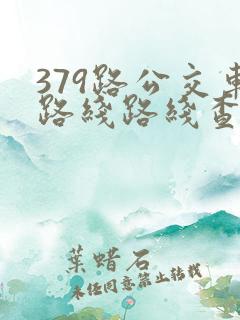 379路公交車
路綫路綫查
葉蠟石
未经同意禁止转载